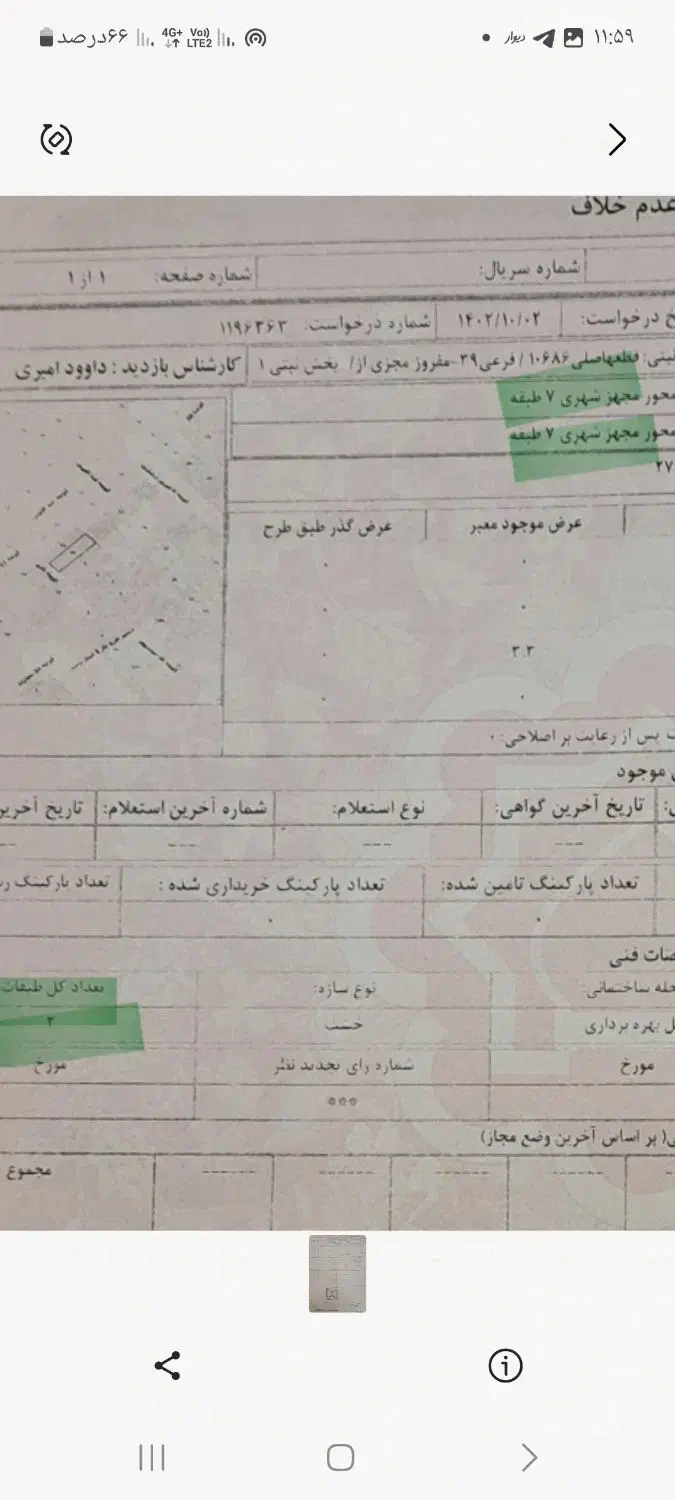 ۱۱:۵۹ دیوار 4G+ Vo)) LTE2 ۶۶درصد
عدم خلاف
شماره سریال: شماره صفحه: ۱ از ۱
درخواست: ۱۴۰۲/۱۰/۰۲ شماره درخواست: ۱۱۹۶۳۶۳
اصلی۱۰۶۸۶ / فرعی۳۹-مفروز مجزی از/ بخش ثبتی ۱ کارشناس بازدید : داوود امیری
محور مجهز شهری ۷ طبقه
محور مجهز شهری ۷ طبقه
۲۷
عرض موجود معبر عرض گذر طبق طرح
۰ ۰
۰ ۰
۳.۳ ۰
۰ ۰
پس از رعایت بر اصلاحی: ۰
موجود
تاریخ آخرین گواهی: نوع استعلام: شماره آخرین استعلام: تاریخ آخرین
--- --- --- --
تعداد پارکینگ تامین شده: تعداد پارکینگ خریداری شده : تعداد پارکینگ
۰ ۰
فنی
ساختمانی: نوع سازه: تعداد کل طبقات
بهره برداری خشت ۲
مورخ شماره رای تجدید نظر مورخ
***
بر اساس آخرین وضع مجاز)
------ ------ ------ ------ مجموع